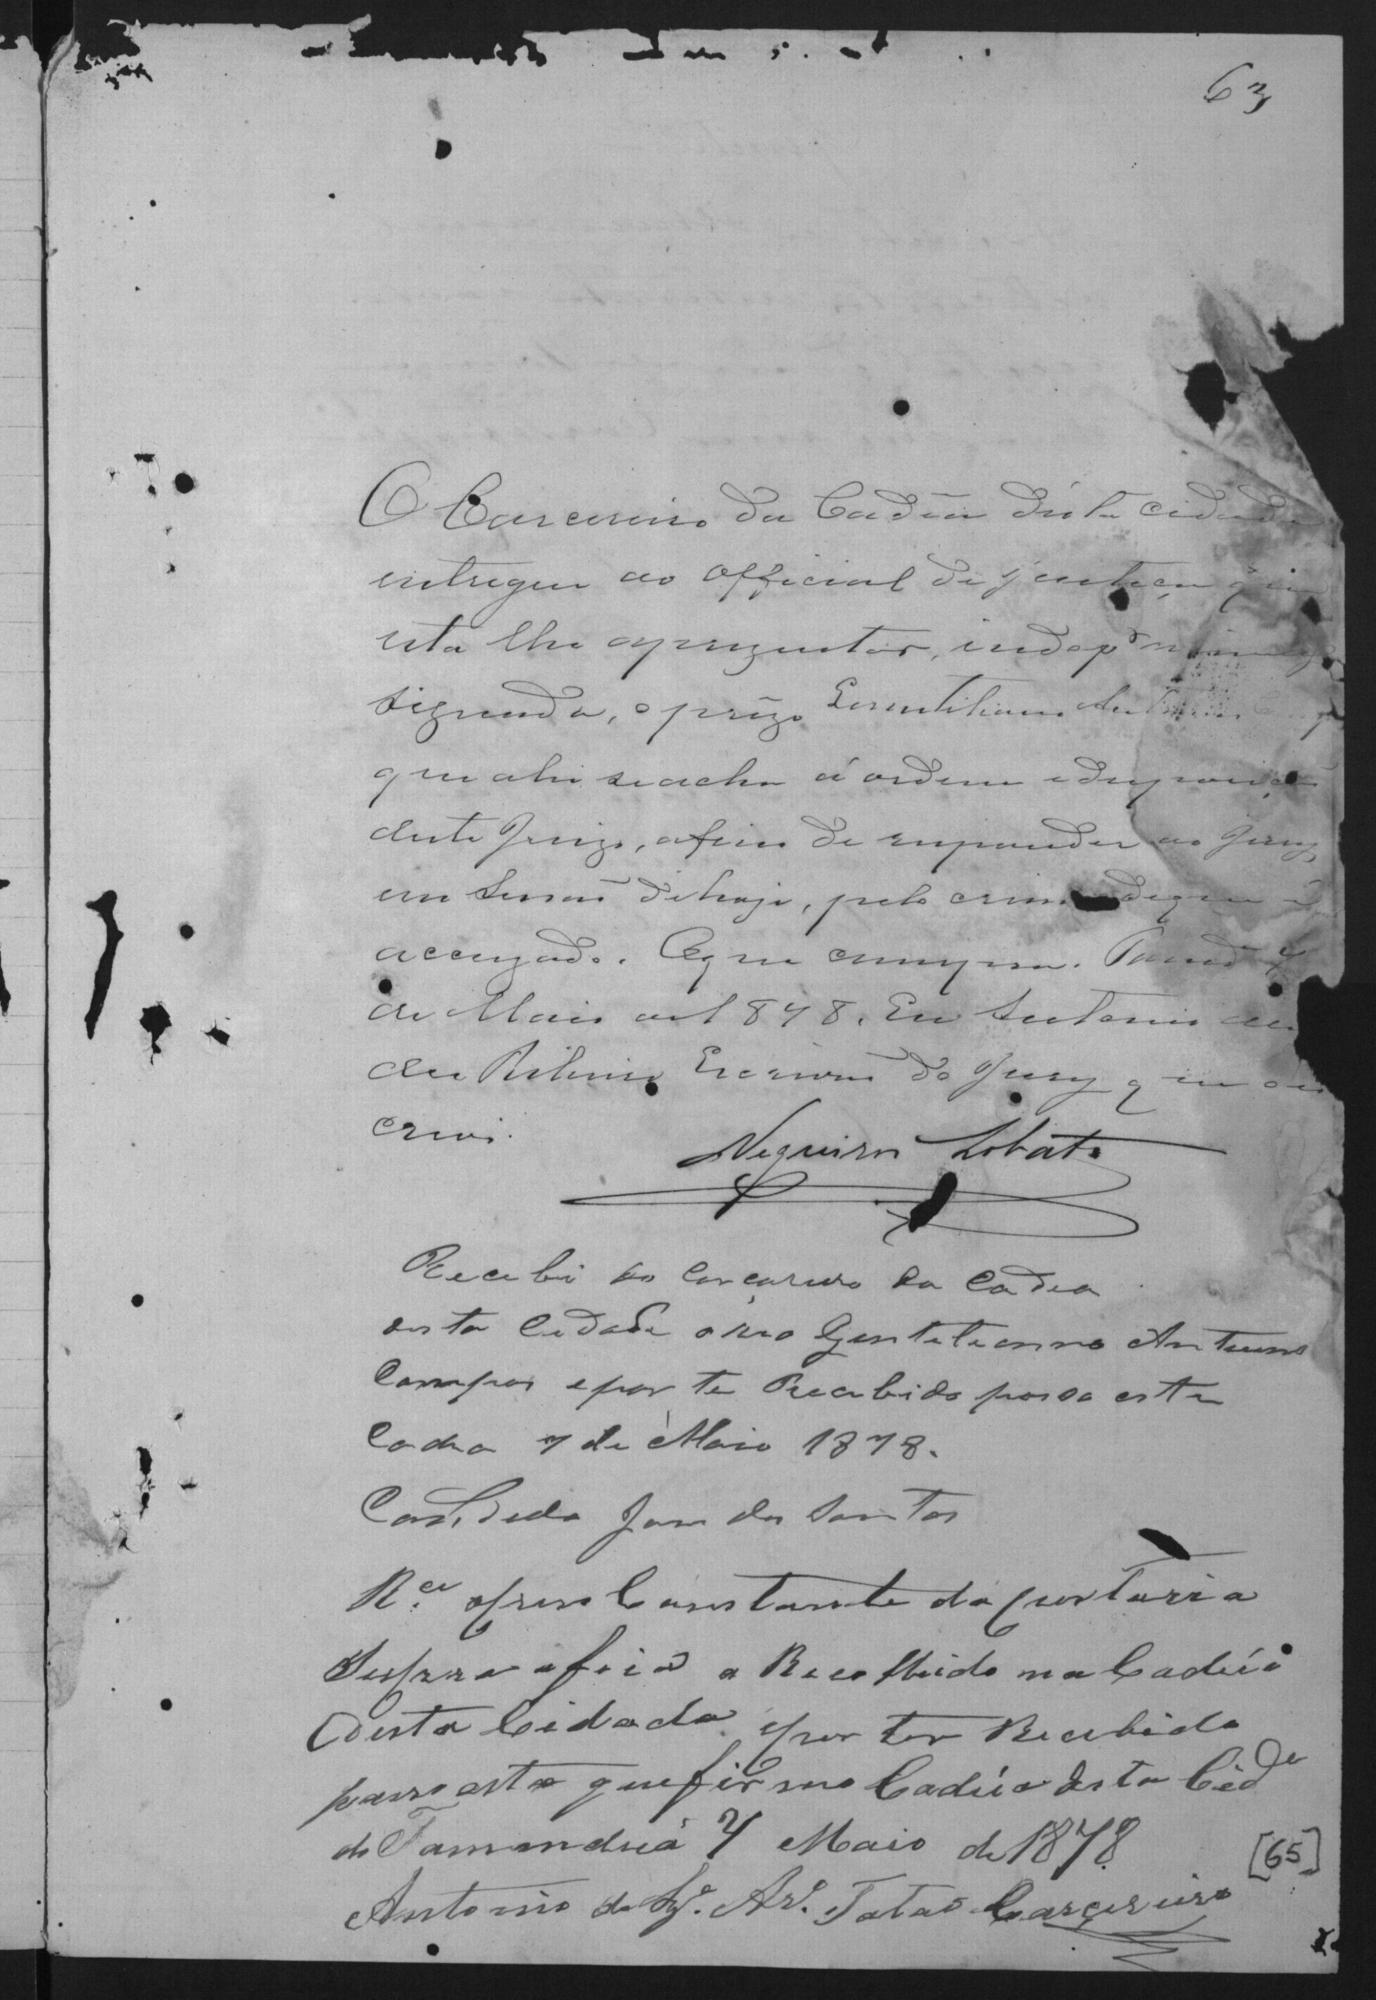 63
O Carcereiro da Cadêa desta cidade
entregue ao official de justiça q
esta lhe aprezentar, indo p.r mim
signada, o prêzo Gentiliano Antunes
que ahi se acha á ordem e dispozição
deste Juizo, afim de responder ao Jury
em Sessão de hoje, pelo crime de que é
accuzado. O que cumpra. Tamd.á 7
de Maio de 1878. Eu Antonio
Ribeiro Escrivão do Jury que o es
crevi.
Nequeira Lobato
Recebi do Carcareiro da Cadea
desta Cidade o reo Gentileanno Antunes
Campos e por te Recebido paso este
Cadea 7 de Maio 1878.
Candido Jose dos Santos
R.ce o preso Constante da purtaria
Supra a foi a Recolhido na Cadêia
desta Cidade e por ter Recebido
passo este que firmo Cadêia desta Cid.de
do Tamanduá 7 Maio de 1878
Antonio de Ar.o Carcereiro
[65]